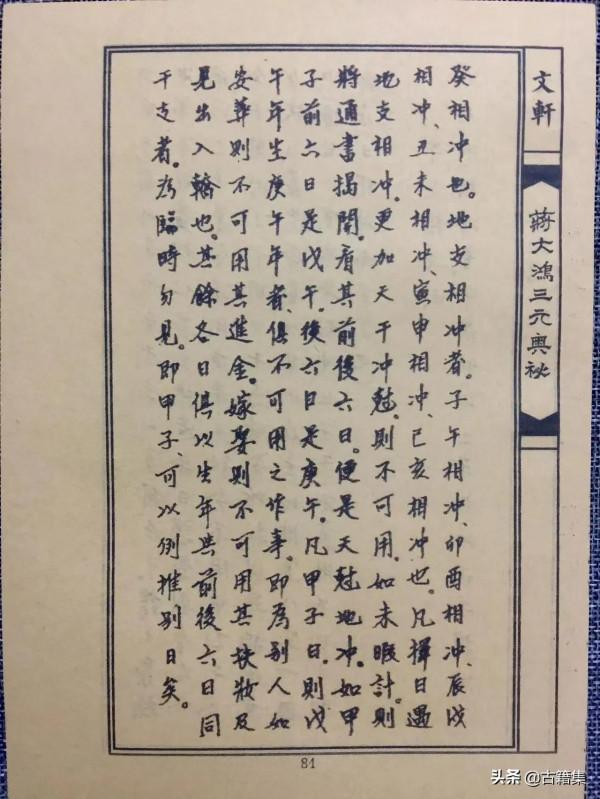 文軒
蔣大鴻三元奧祕
癸相冲也。地支相冲者。子午相冲、卯酉相冲、辰戌
相冲、丑未相冲、寅申相冲、巳亥相冲也。凡擇日遇
地支相冲。更加天干冲尅。則不可用。如未暇計。則
將通書揭開。看其前後六日。便是天尅地冲。如甲
子前六日是戊午。後六日是庚午。凡甲子日。則戊
午年生庚午年者、俱不可用之作事。即為別人如
安葬則不可用其進金。嫁娶則不可用其扶妝及
見出入轎也。其餘各日俱以生年與前後六日同
干支者。為臨時勿見。即甲子、可以例推別日矣。
81
头条 @古籍集